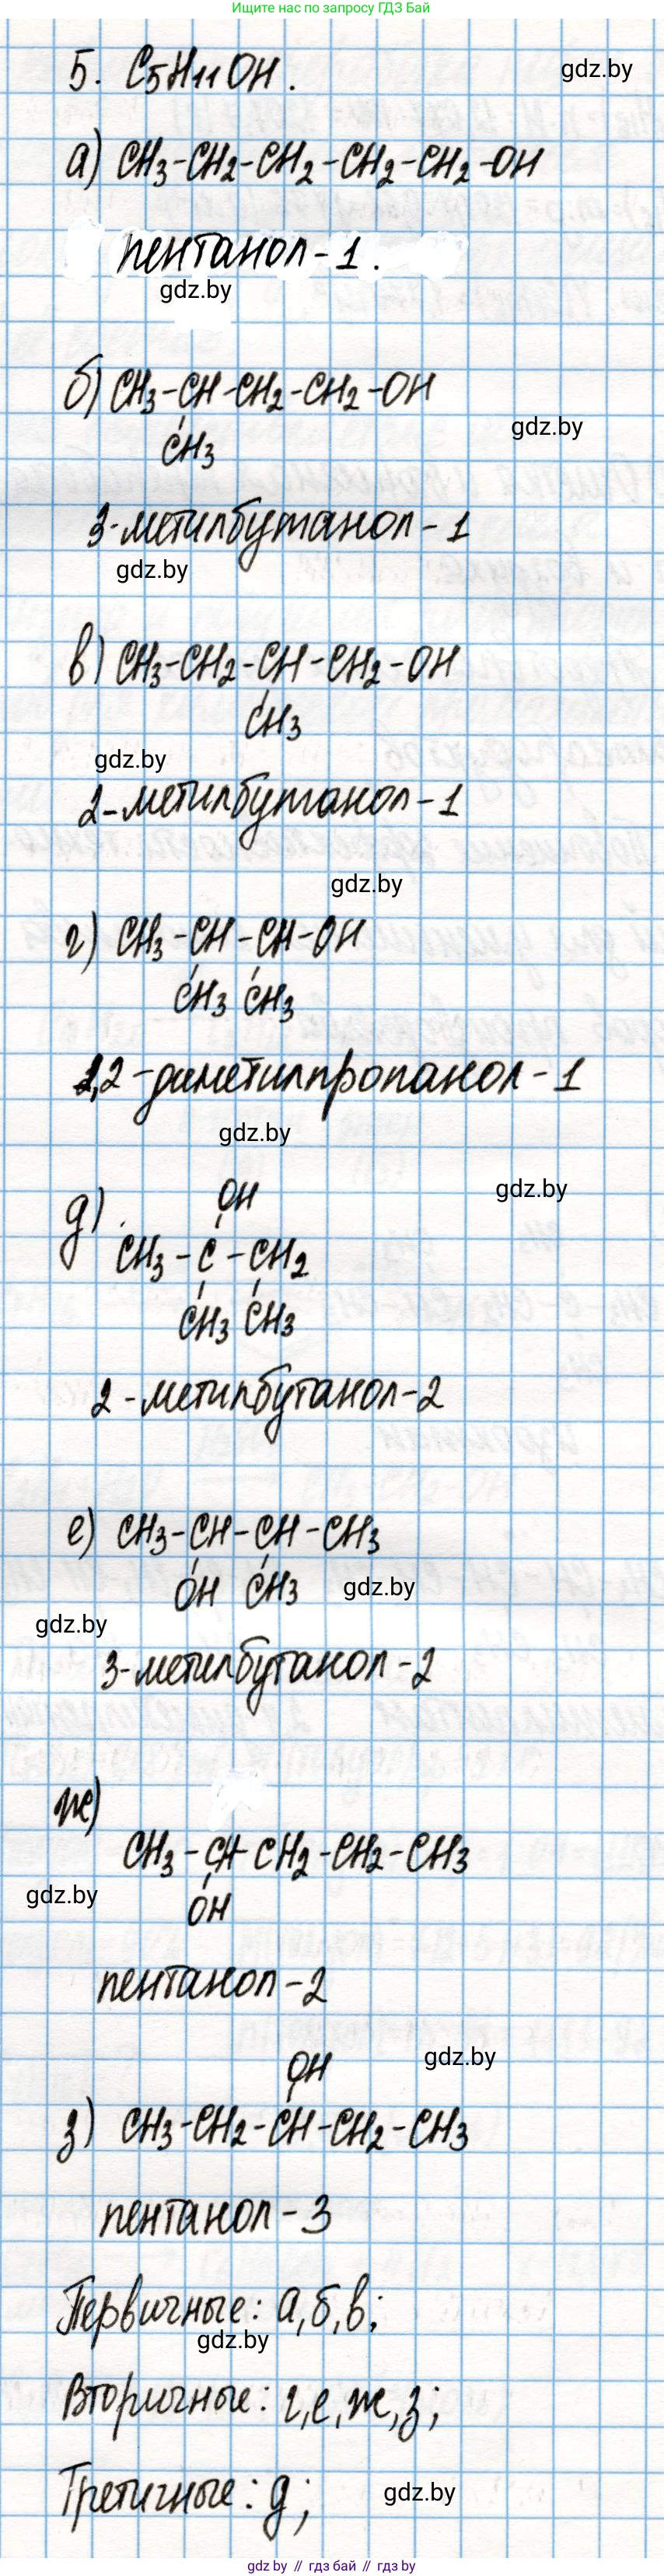 Ищите нас по запросу ГДЗ Бай
5. C5H11OH.
gdz.by
а) CH3-CH2-CH2-CH2-CH2-OH
пентанол-1.
gdz.by
б) CH3-CH-CH2-CH2-OH
gdz.by
CH3
3-метилбутанол-1
gdz.by
в) CH3-CH2-CH-CH2-OH
CH3
gdz.by
2-метилбутанол-1
gdz.by
г) CH3-CH-CH-OH
CH3 CH3
1,2-диметилпропанол-1
gdz.by
gdz.by
OH
д) CH3-C-CH2
CH3 CH3
2-метилбутанол-2
е) CH3-CH-CH-CH3
OH CH3
gdz.by
gdz.by
3-метилбутанол-2
ж)
CH3-CH-CH2-CH2-CH3
gdz.by
OH
пентанол-2
gdz.by
OH
з) CH3-CH2-CH-CH2-CH3
пентанол-3
Первичные: а,б,в;
gdz.by
Вторичные: г,е,ж,з;
Третичные: д;
gdz.by
gdz.by // гдз бай // gdz.by